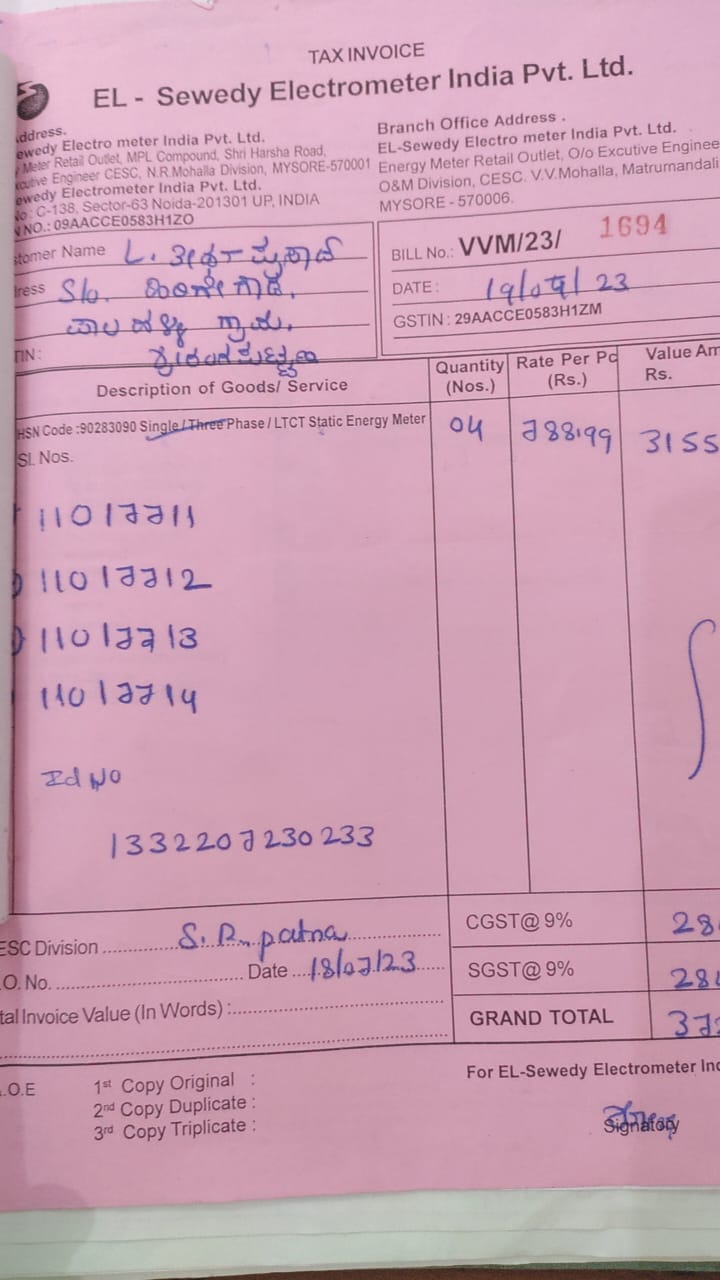 TAX INVOICE
EL - Sewedy Electrometer India Pvt. Ltd.
ddress.
ewedy Electro meter India Pvt. Ltd.
Meter Retail Outlet, MPL Compound, Shri Harsha Road,
cutive Engineer CESC, N.R.Mohalla Division, MYSORE-570001
ewedy Electrometer India Pvt. Ltd.
No : C-138, Sector-63 Noida-201301 UP, INDIA
NO.: 09AACCE0583H1ZO
Branch Office Address .
EL-Sewedy Electro meter India Pvt. Ltd.
Energy Meter Retail Outlet, O/o Excutive Enginee
O&M Division, CESC. V.V.Mohalla, Matrumandali
MYSORE - 570006.
stomer Name L.
ress S/o.
TIN :
BILL No.: VVM/23/ 1694
DATE : 19/07/23
GSTIN : 29AACCE0583H1ZM
Description of Goods/ Service
Quantity (Nos.)
Rate Per Pc (Rs.)
Value Am Rs.
HSN Code :90283090 Single / Three Phase / LTCT Static Energy Meter 04 788.99 3155
Sl. Nos.
11017711
11017712
11017713
11017714
Id No
1332207230233
ESC Division S. R. patna
.O. No. Date 18/07/23
tal Invoice Value (In Words) :
CGST@ 9% 28
SGST@ 9% 28
GRAND TOTAL 372
.O.E
1st Copy Original :
2nd Copy Duplicate :
3rd Copy Triplicate :
For EL-Sewedy Electrometer Ind
Signatory